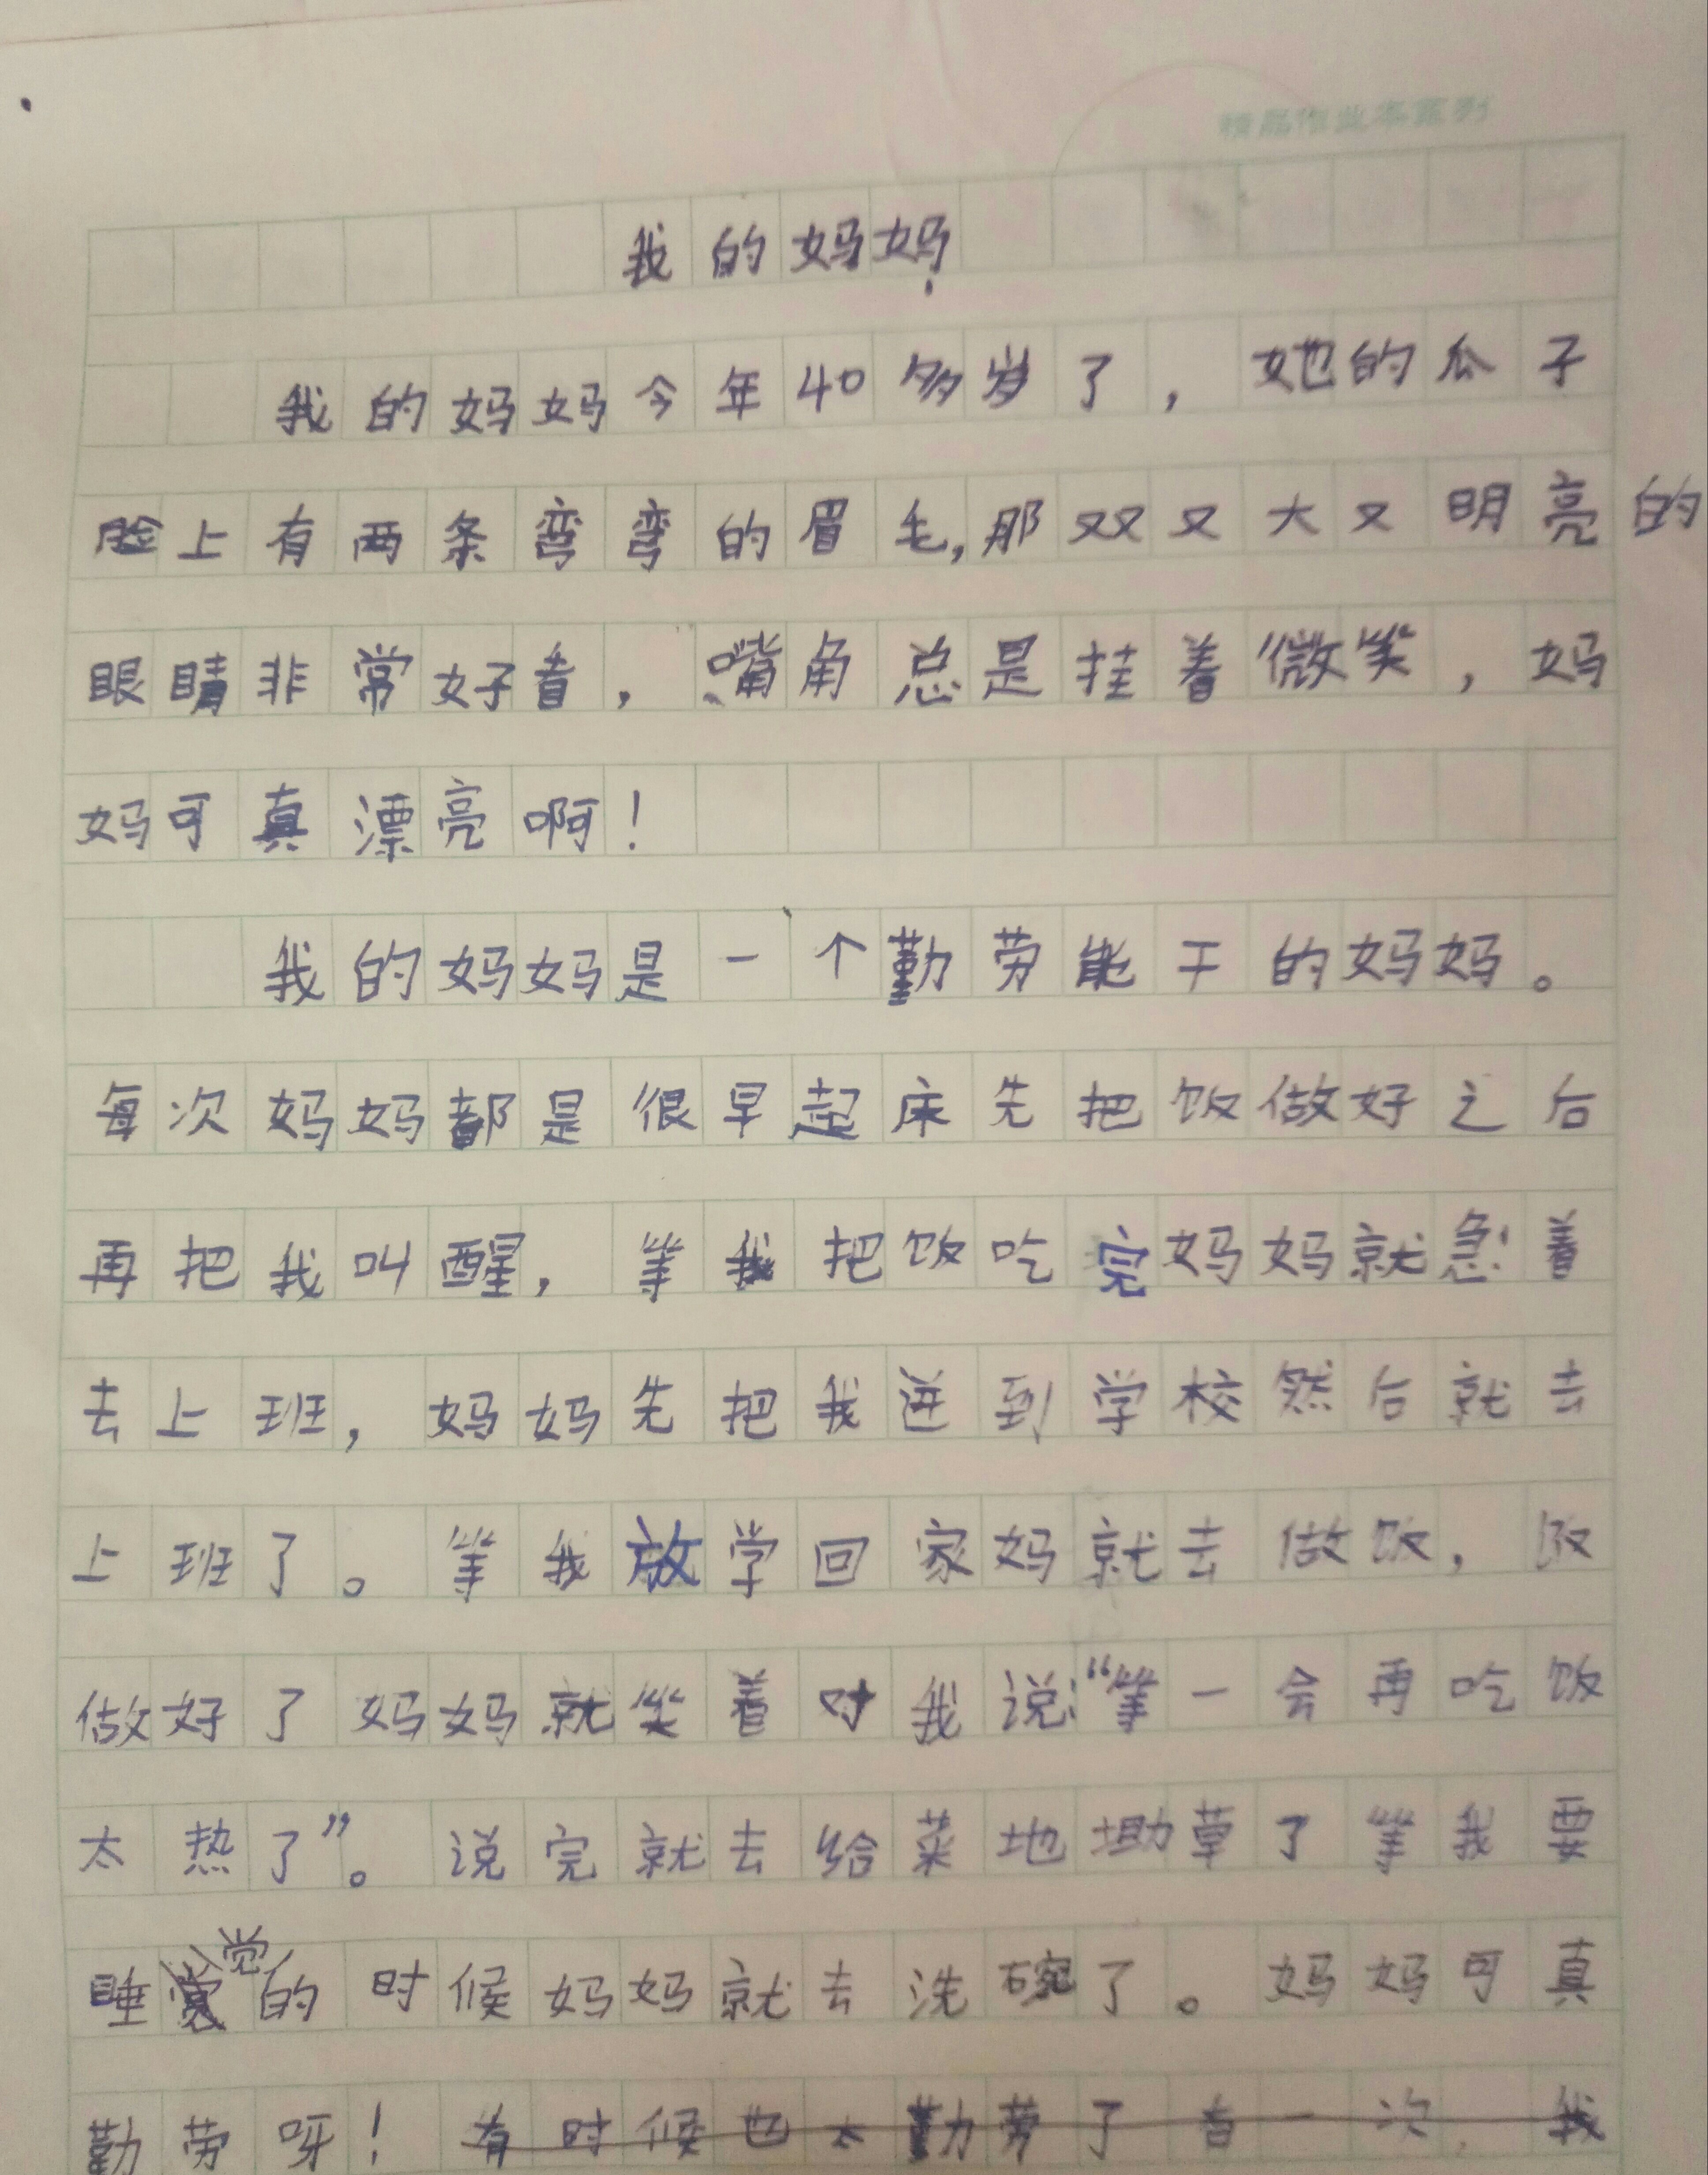 精品作业本系列
我的妈妈
我的妈妈今年40多岁了，她的瓜子
脸上有两条弯弯的眉毛,那双又大又明亮的
眼睛非常好看，嘴角总是挂着微笑，妈
妈可真漂亮啊！
我的妈妈是一个勤劳能干的妈妈。
每次妈妈都是很早起床先把饭做好之后
再把我叫醒，等我把饭吃完妈妈就急着
去上班，妈妈先把我送到学校然后就去
上班了。等我放学回家妈就去做饭，饭
做好了妈妈就笑着对我说：“等一会再吃饭
太热了”。说完就去给菜地锄草了等我要
睡觉的时候妈妈就去洗碗了。妈妈可真
勤劳呀！有时候也太勤劳了有一次，我